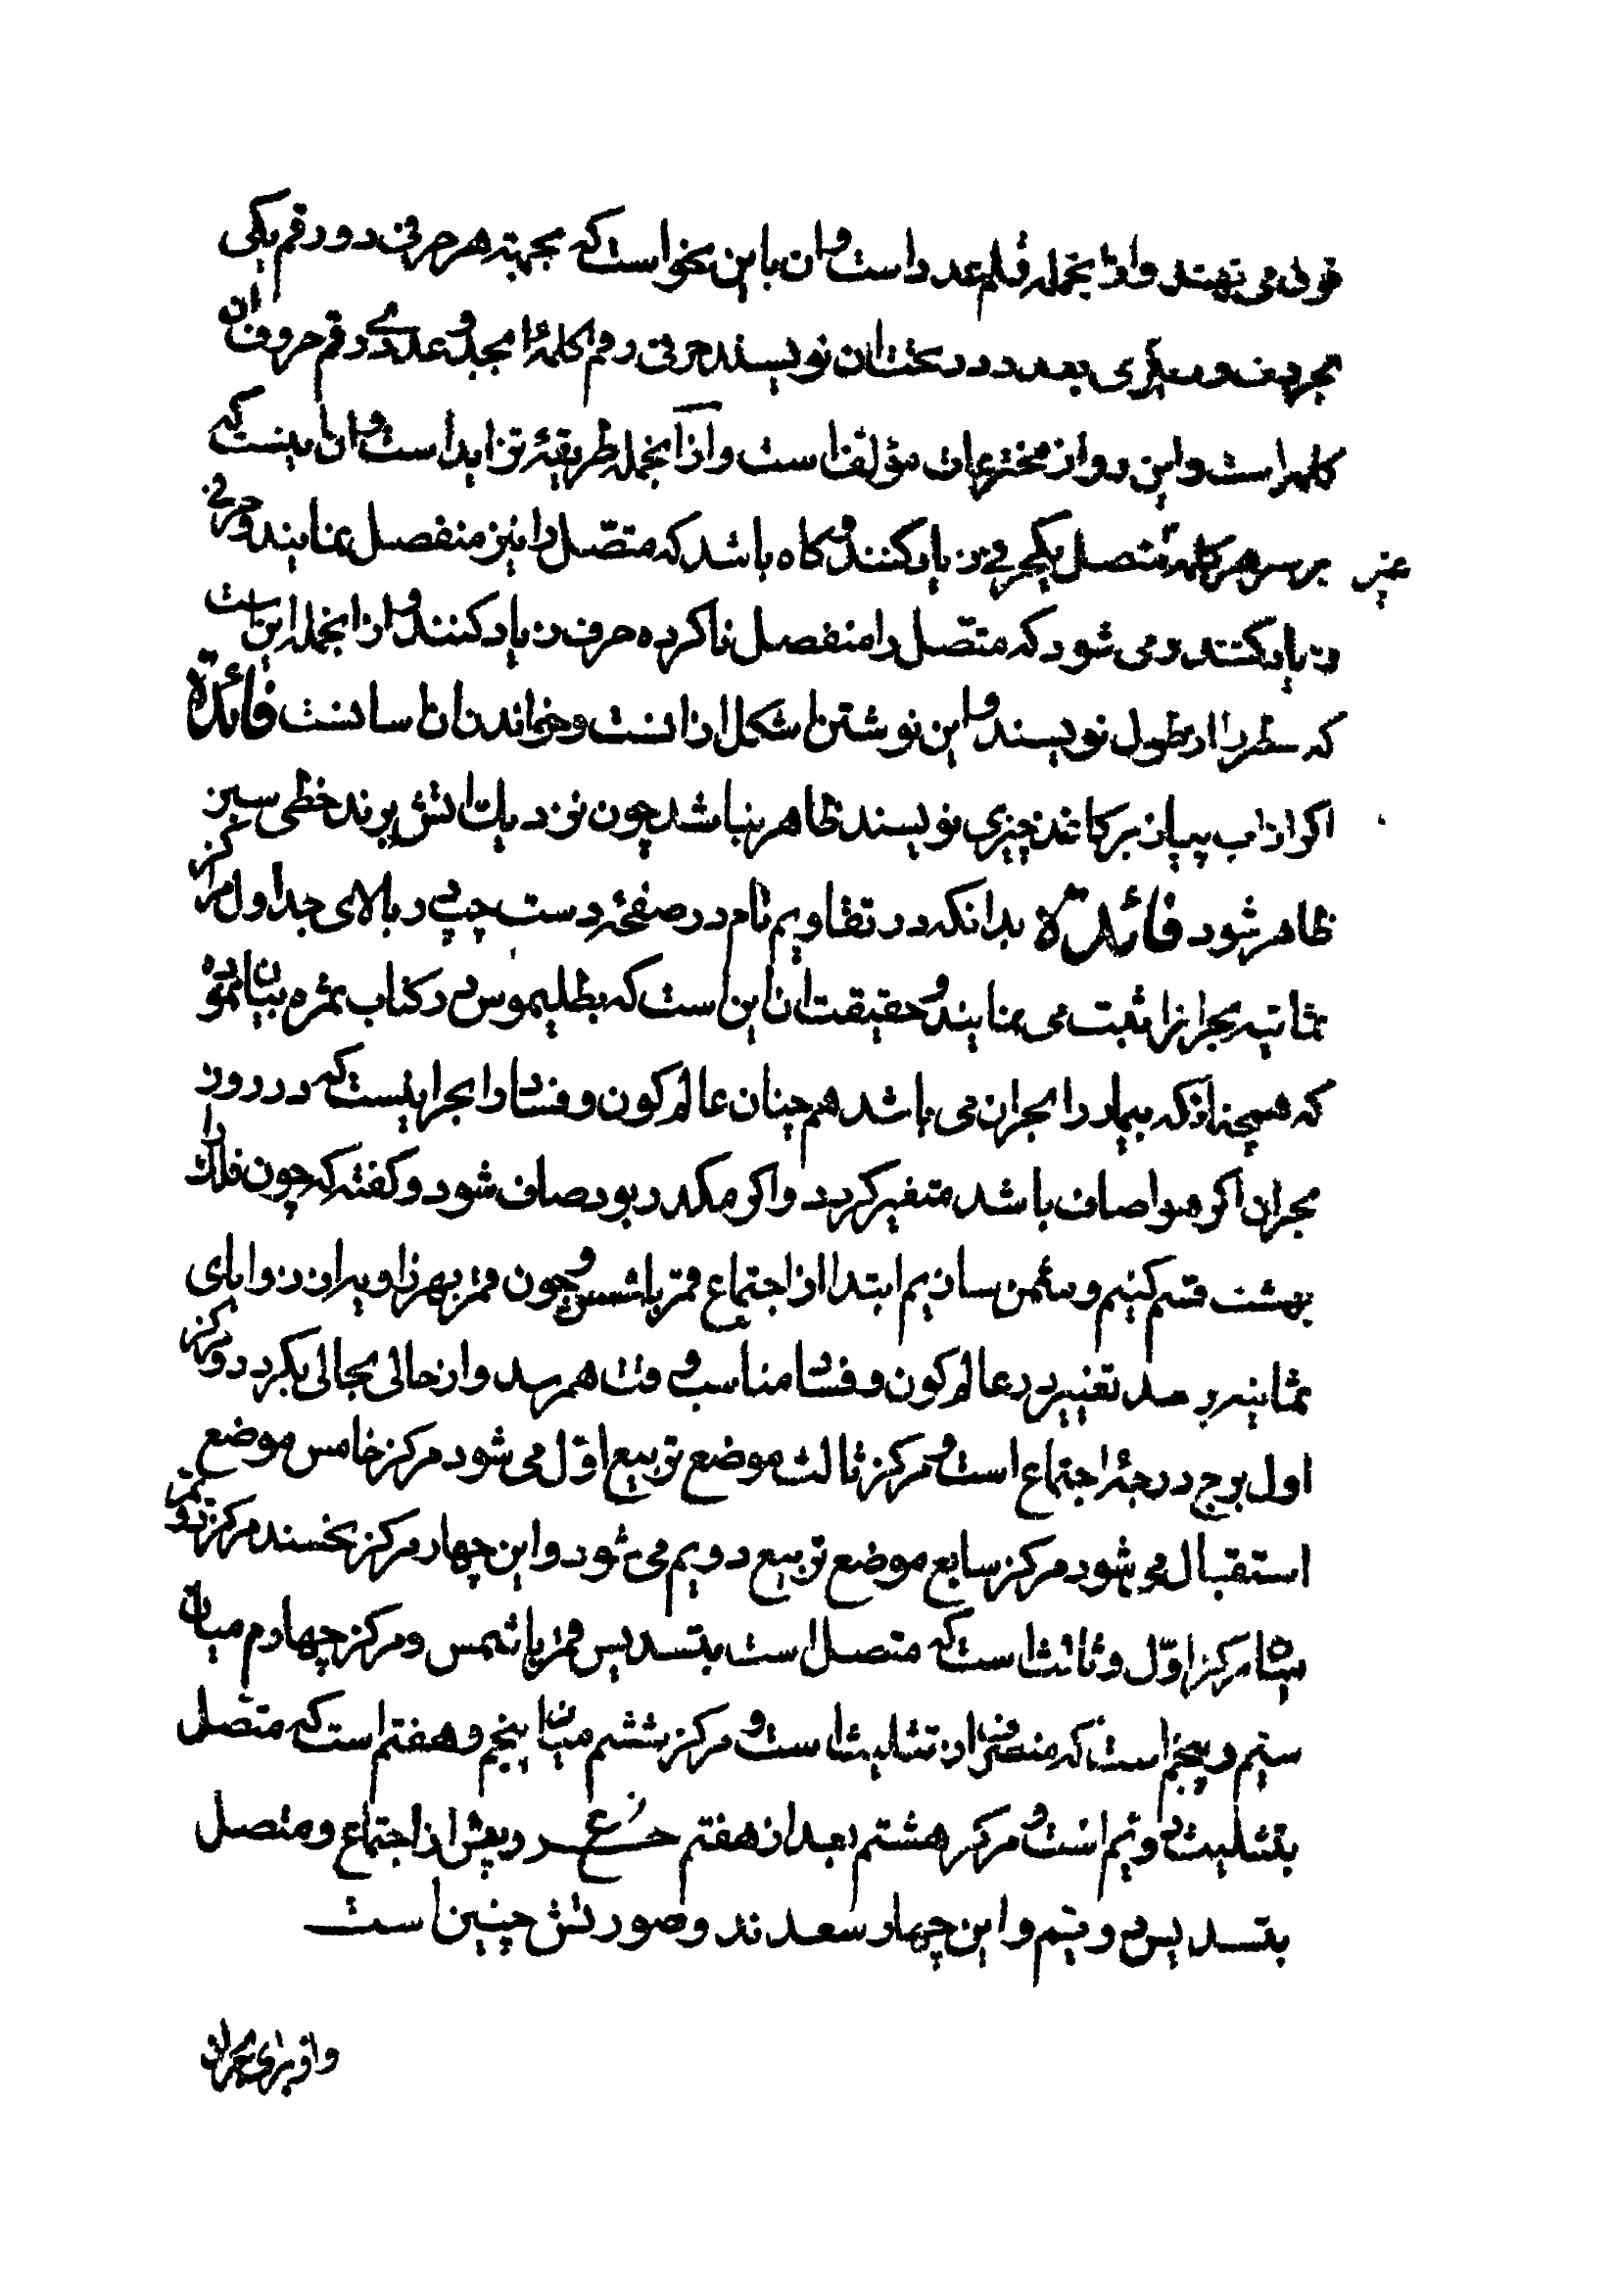 فوق می نهند و از انجمله قلم عدد است و ان باین نحو است که بجهته هر حرفی دو رقم یکی
بحروف و دیگری بعدد در تحت ان نویسند حرفی رقم کلمۀ ابجد و عددی رقم حروف ان
کلمه است و این دو از مخترعات مؤلف است و از انجمله طریقۀ تزاید است و ان اینست که
بر سر هر کلمۀ متصل یکحرفی زیاد کنند و کاه باشد که متصّل را نیز منفصل نمایند و حرفی
غیر
زیاد کنند و می شود که متصّل را منفصل ناکرده حرف زیاد کنند و از انجمله این است
که سطر را از طول نویسند و این نوشتن اشکل از انست و خواندن ان اسانست فائدة
اکر از اب پیاز بر کاغذ چیزی نویسند ظاهر نباشد چون نزدیک اتش برند خطی سبز
ظاهر شود فائدة بدانکه در تقاویم نام در صفحۀ دست چپ در بالای جداول مراکز
ثمانیه بحرانرا ثبت می نمایند و حقیقت ان این است که بطلیموس در کتاب ثمره بیان نموده
که همچنانکه بیمار را بحران می باشد هم چنان عالم کون و فساد را بحرانیست که در روز
بحران اکر هوا صاف باشد متغیر کردد و اکر مکدر بود صاف شود و کفته که چون فلک را
بهشت قسم کنیم و مثمن سازیم ابتدا از اجتماع قمر با شمس و چون قمر بهر زاویه از زوایای
ثمانیه رسد تغییر در عالم کون و فساد مناسب وقت همرسد و از حالی بحالی بکردد و مرکز
اول برج درجۀ اجتماع است و مرکز ثالث موضع تربیع اوّل می شود مرکز خامس موضع
استقبال می شود مرکز سابع موضع تربیع دویم می شود و این چهار مرکز نحسند مرکز دویم
میان مرکز اوّل و ثالث است که متصل است بتسدیس قمر با شمس و مرکز چهارم میان
سیم و پنجم است که منصرف از تثلیث است و مرکز ششم میان پنجم و هفتم است که متصل
بتثلیث دویم است و مرکز هشتم بعد از هفتم و پیش از اجتماع و متصل
بتسدیس دویم و این چهار سعدند و صورتش چنین است